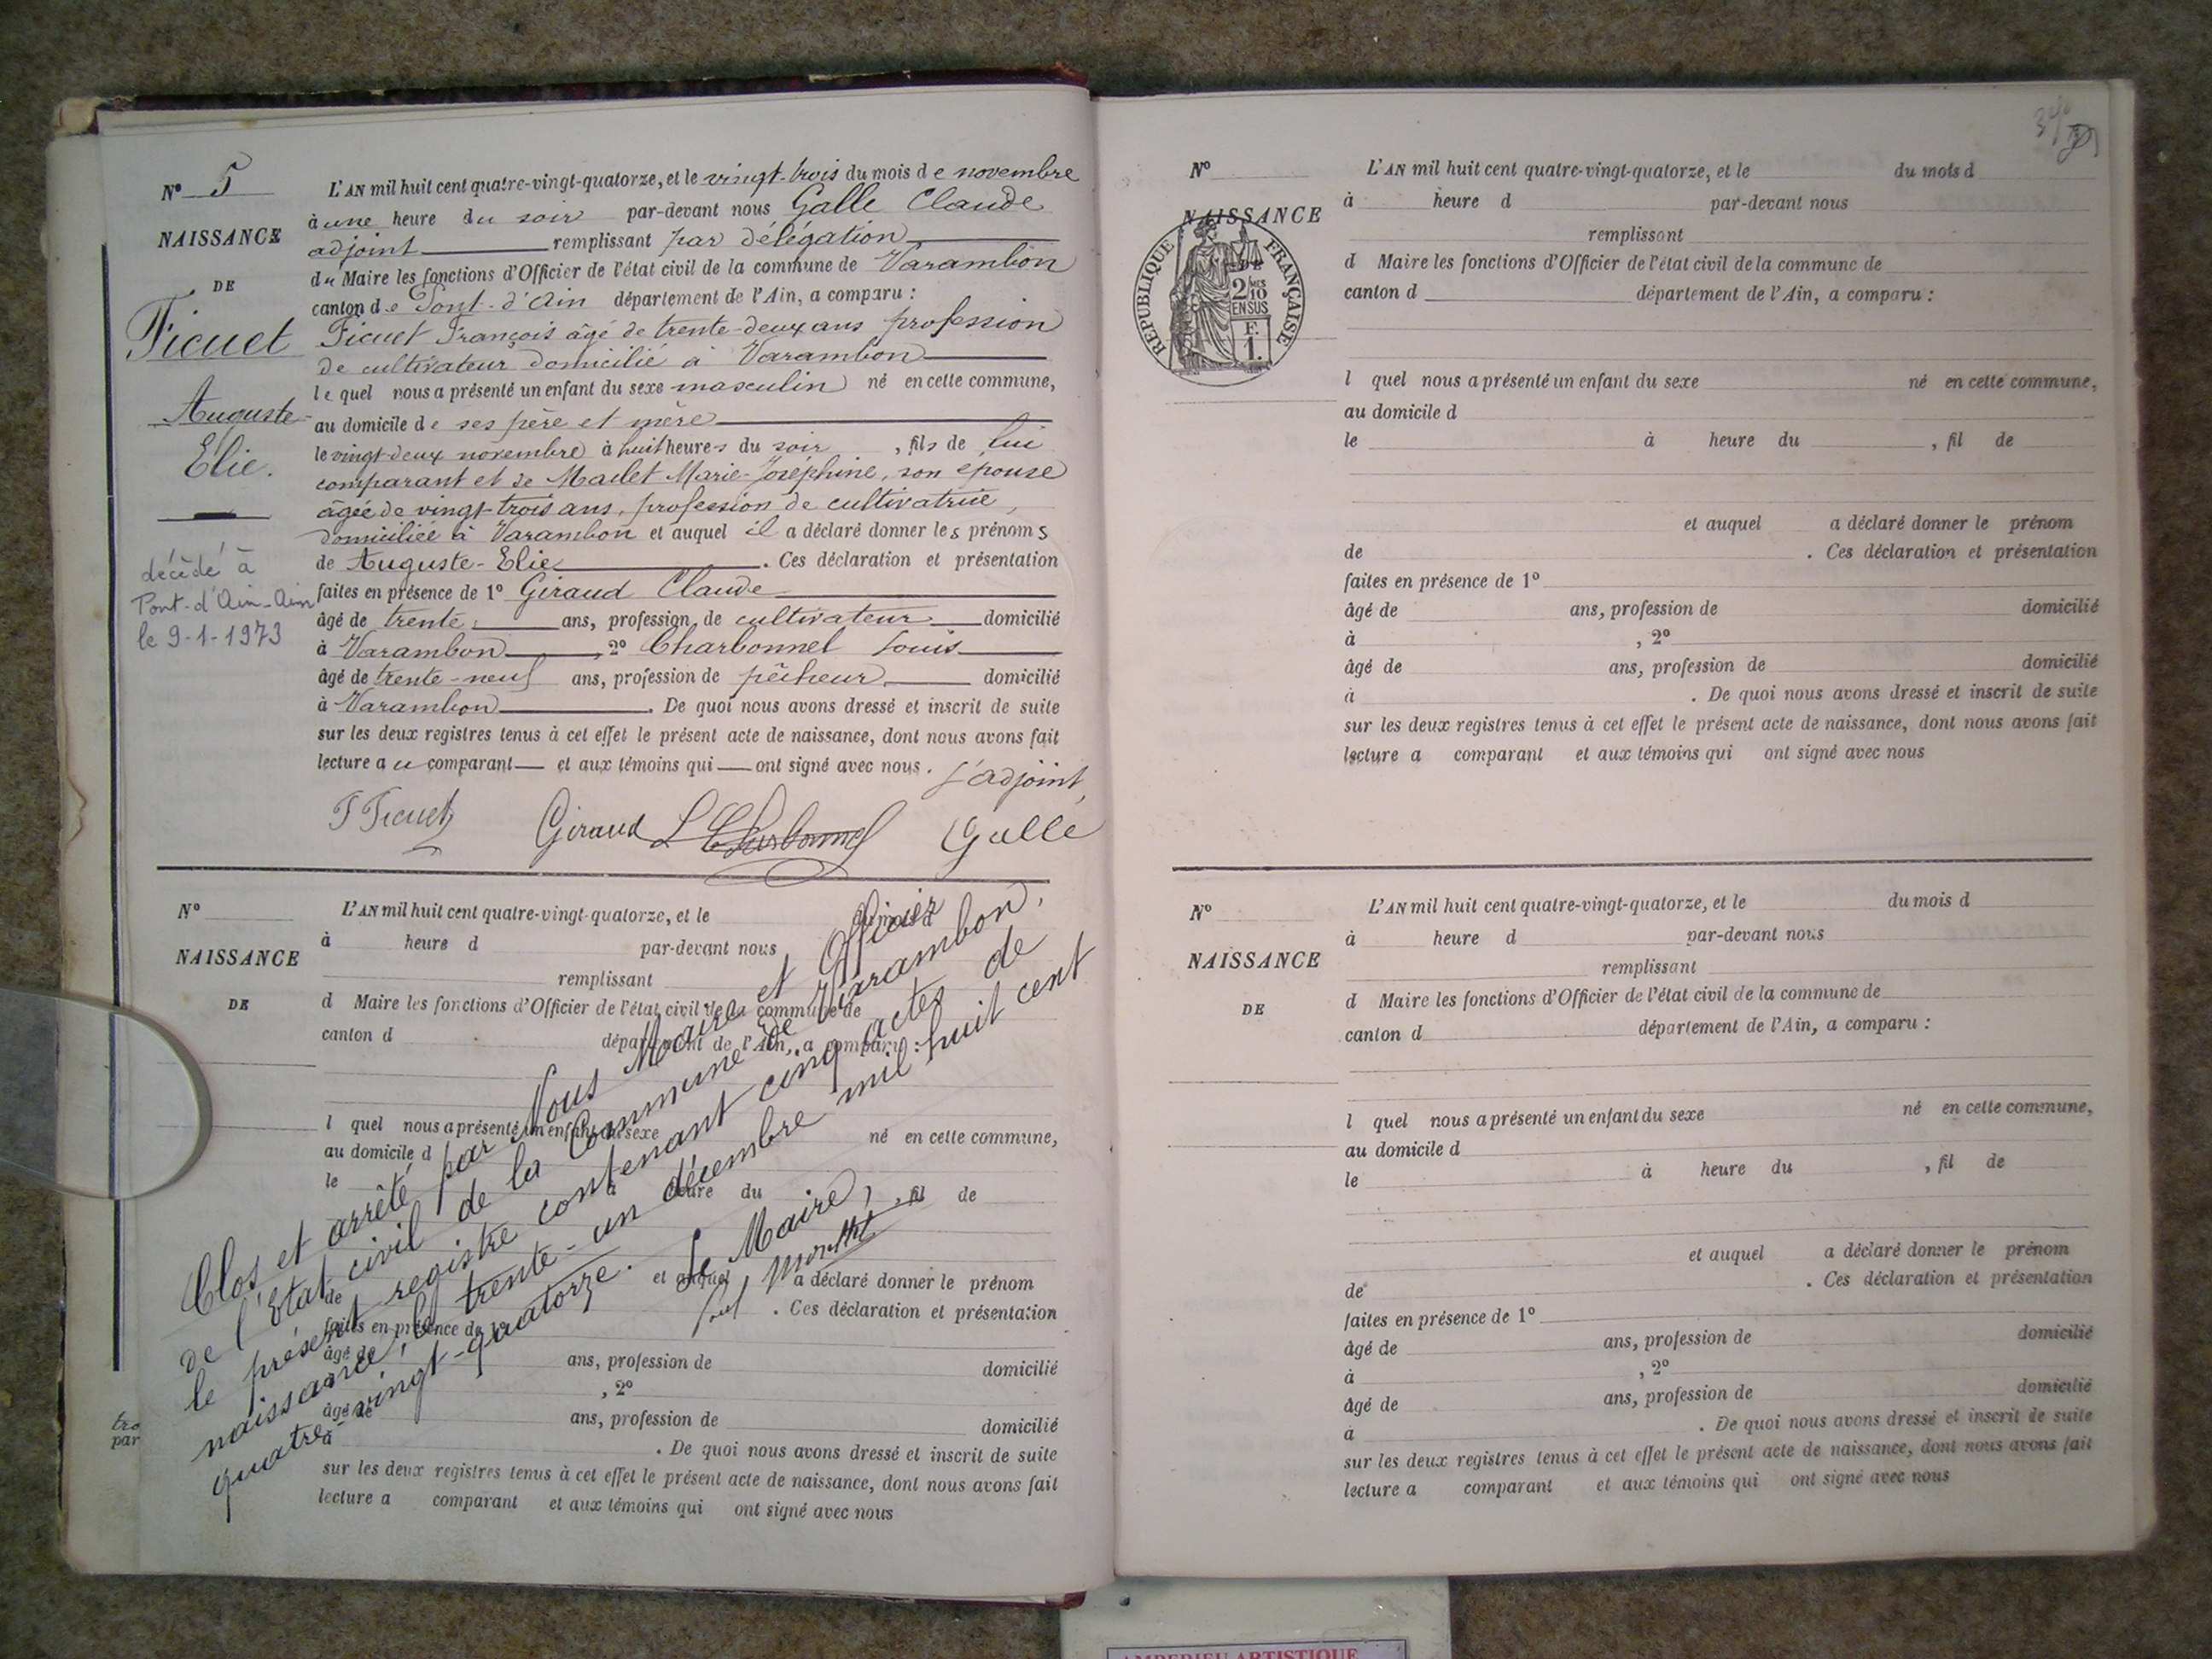 N° 5
NAISSANCE
DE
Ficuet
Auguste-
Elie.
décédé à
Pont-d'Ain-Ain
le 9-1-1973
L'AN mil huit cent quatre-vingt-quatorze, et le vingt-trois du mois de novembre
à une heure du soir par-devant nous Galle Claude
adjoint remplissant par délégation
du Maire les fonctions d'Officier de l'état civil de la commune de Varambon
canton de Pont-d'Ain département de l'Ain, a comparu :
Ficuet François âgé de trente-deux ans profession
de cultivateur domicilié à Varambon
lequel nous a présenté un enfant du sexe masculin né en cette commune,
au domicile de ses père et mère
le vingt-deux novembre à huit heures du soir , fils de lui
comparant et de Maclet Marie-Joséphine, son épouse
âgée de vingt-trois ans, profession de cultivatrice,
domiciliée à Varambon et auquel il a déclaré donner les prénoms
de Auguste-Elie . Ces déclaration et présentation
faites en présence de 1° Giraud Claude
âgé de trente ans, profession de cultivateur domicilié
à Varambon , 2° Charbonnel Louis
âgé de trente-neuf ans, profession de pêcheur domicilié
à Varambon . De quoi nous avons dressé et inscrit de suite
sur les deux registres tenus à cet effet le présent acte de naissance, dont nous avons fait
lecture au comparant et aux témoins qui ont signé avec nous. L'adjoint,
F Ficuet Giraud L Charbonnel Galle
N°
NAISSANCE
DE
L'AN mil huit cent quatre-vingt-quatorze, et le du mois d
à heure d par-devant nous
remplissant
d Maire les fonctions d'Officier de l'état civil de la commune de
canton d département de l'Ain, a comparu :
l quel nous a présenté un enfant du sexe né en cette commune,
au domicile d
le à heure du , fil de
et auquel a déclaré donner le prénom
de . Ces déclaration et présentation
faites en présence de 1°
âgé de ans, profession de domicilié
à , 2°
âgé de ans, profession de domicilié
à . De quoi nous avons dressé et inscrit de suite
sur les deux registres tenus à cet effet le présent acte de naissance, dont nous avons fait
lecture a comparant et aux témoins qui ont signé avec nous
Clos et arrêté par Nous Maire et Officier
de l'Etat civil de la Commune de Varambon,
le présent registre contenant cinq actes de
naissance, le trente-un décembre mil huit cent
quatre-vingt-quatorze. Le Maire,
tro
par
N°
NAISSANCE
DE
RÉPUBLIQUE FRANÇAISE
2 MES
10
EN SUS
F.
1.
L'AN mil huit cent quatre-vingt-quatorze, et le du mois d
à heure d par-devant nous
remplissant
d Maire les fonctions d'Officier de l'état civil de la commune de
canton d département de l'Ain, a comparu :
l quel nous a présenté un enfant du sexe né en cette commune,
au domicile d
le à heure du , fil de
et auquel a déclaré donner le prénom
de . Ces déclaration et présentation
faites en présence de 1°
âgé de ans, profession de domicilié
à , 2°
âgé de ans, profession de domicilié
à . De quoi nous avons dressé et inscrit de suite
sur les deux registres tenus à cet effet le présent acte de naissance, dont nous avons fait
lecture a comparant et aux témoins qui ont signé avec nous
N°
NAISSANCE
DE
L'AN mil huit cent quatre-vingt-quatorze, et le du mois d
à heure d par-devant nous
remplissant
d Maire les fonctions d'Officier de l'état civil de la commune de
canton d département de l'Ain, a comparu :
l quel nous a présenté un enfant du sexe né en cette commune,
au domicile d
le à heure du , fil de
et auquel a déclaré donner le prénom
de . Ces déclaration et présentation
faites en présence de 1°
âgé de ans, profession de domicilié
à , 2°
âgé de ans, profession de domicilié
à . De quoi nous avons dressé et inscrit de suite
sur les deux registres tenus à cet effet le présent acte de naissance, dont nous avons fait
lecture a comparant et aux témoins qui ont signé avec nous
ARTISTIQUE